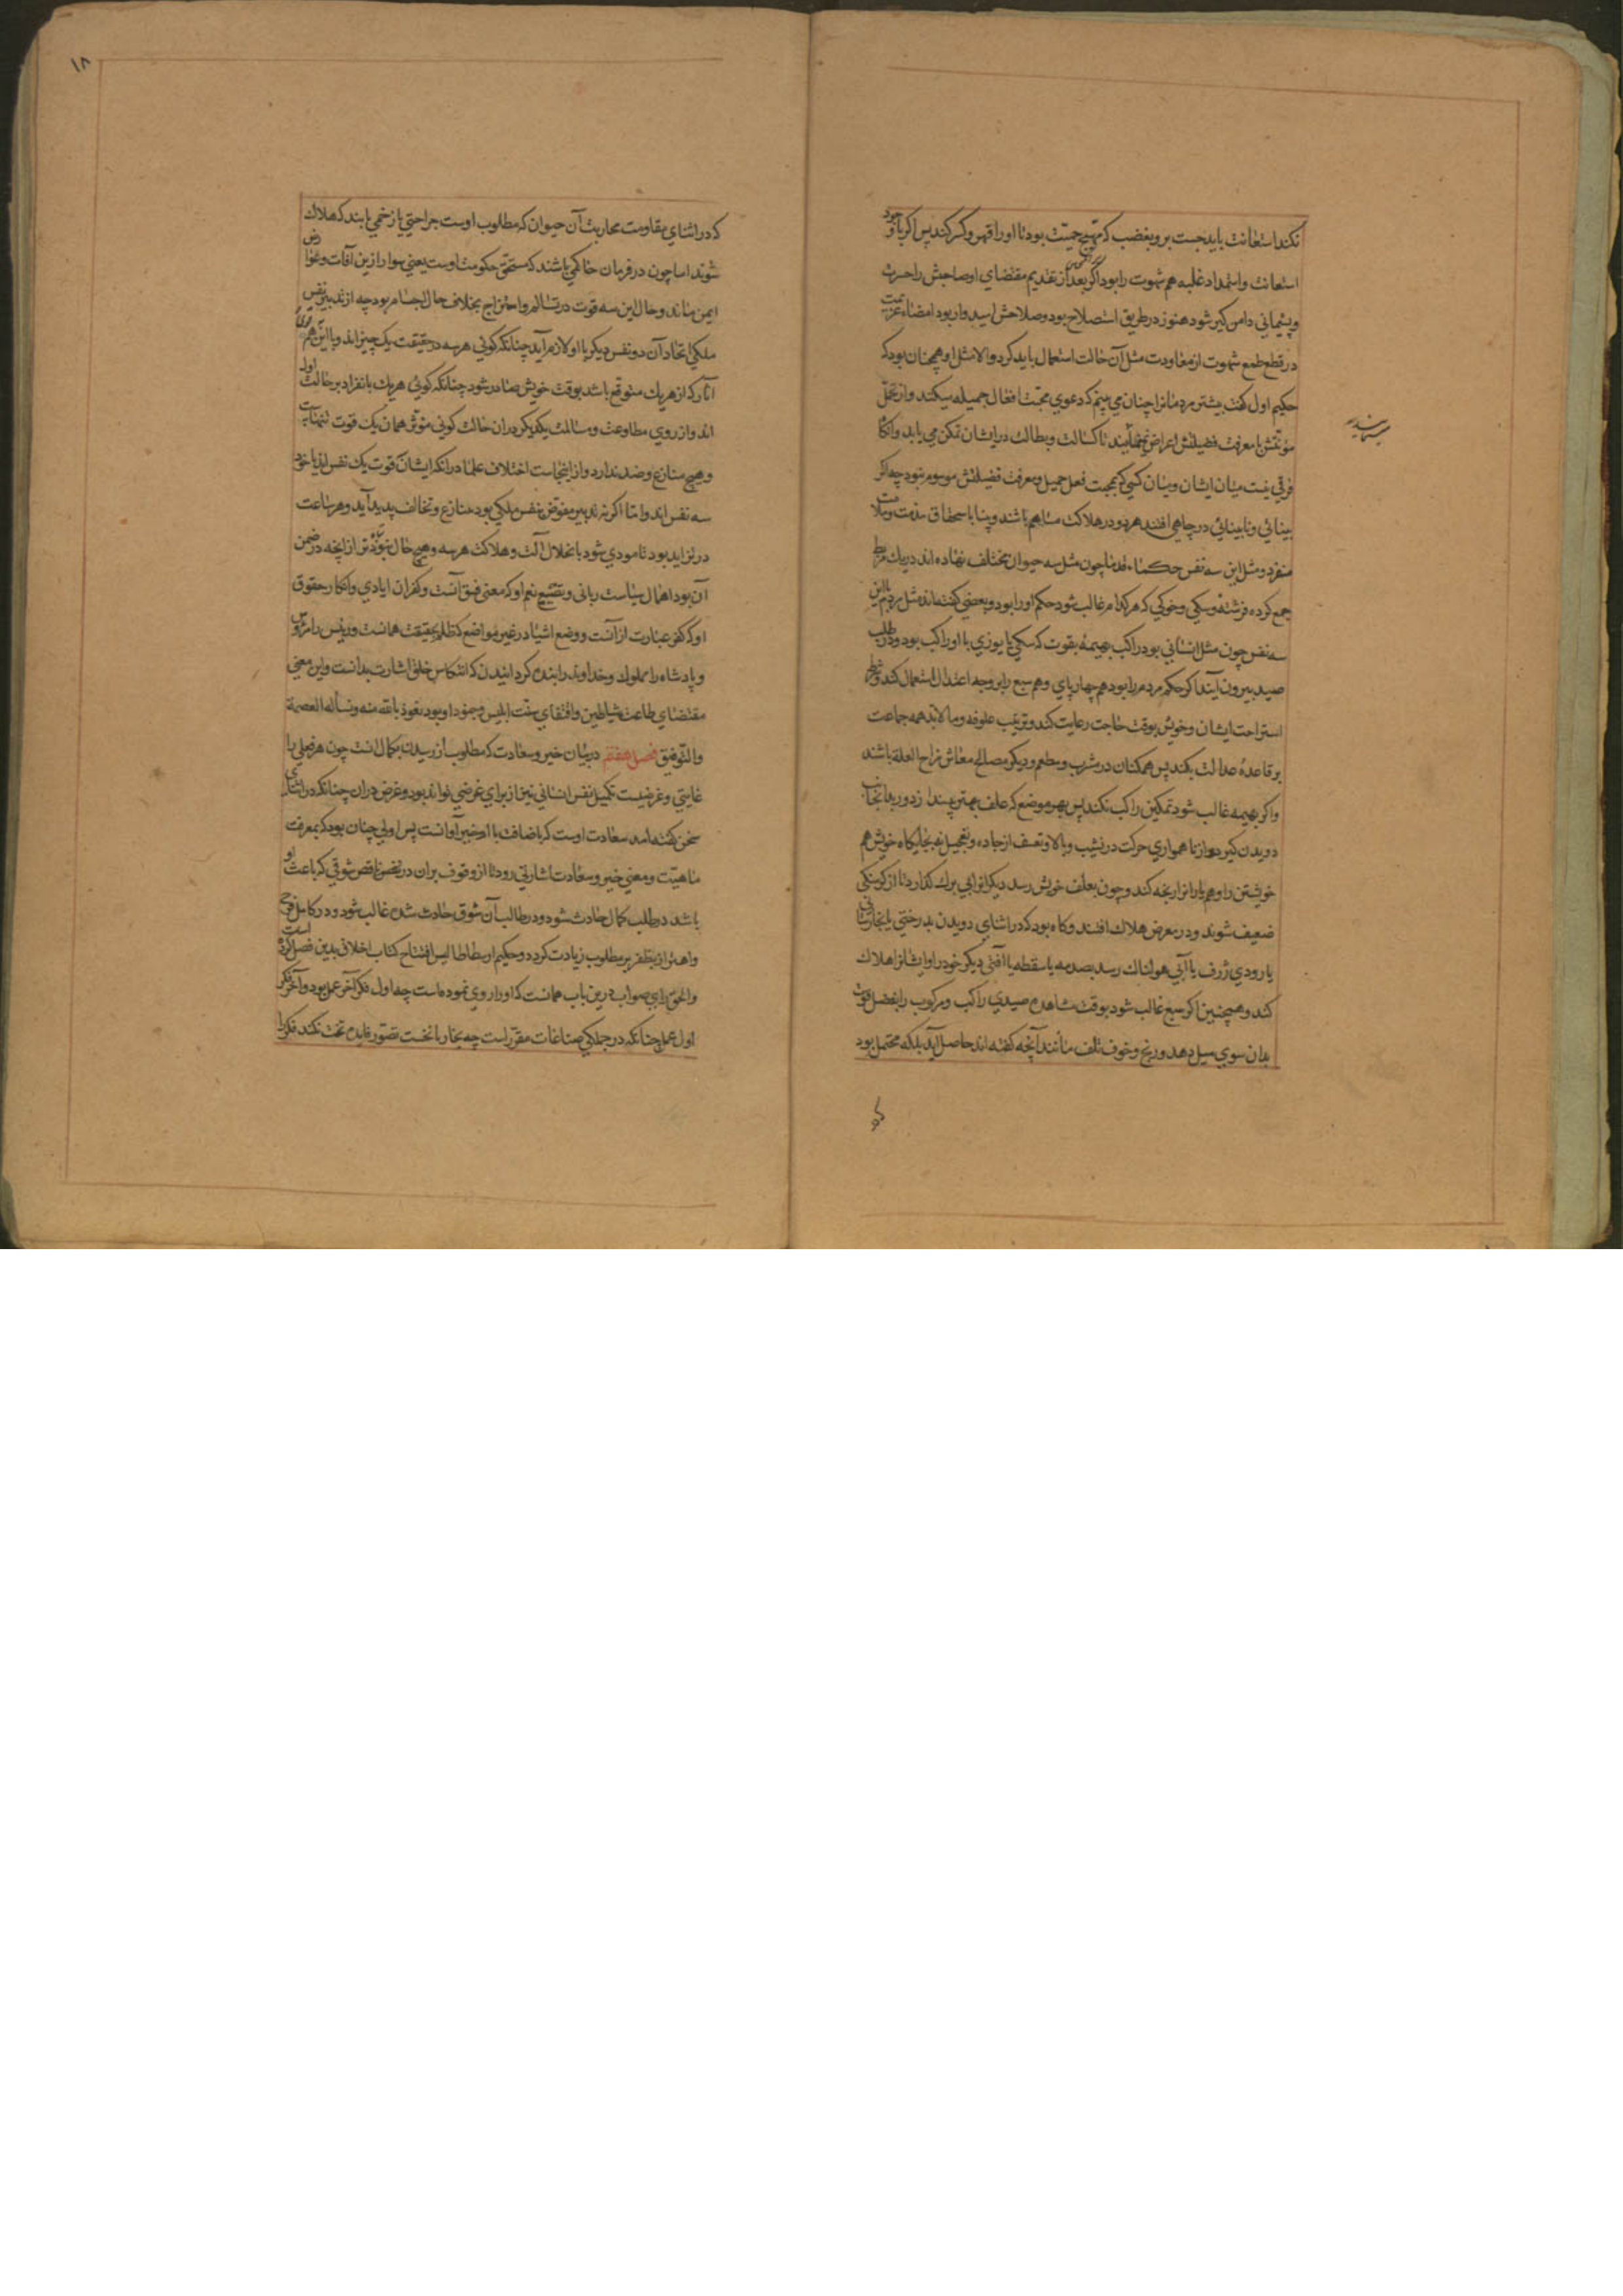 نکند استعانت باید جست برو بغضب که مهیج حمیّت بود تا او را قهر و کسر کند پس اگر با وجود
استعانت و استمداد غلبه هم شهوت را بود اگر بعد از تقدیم مقتضای او صاحبش را حسرت
و پشیمانی دامن گیر شود هنوز در طریق استصلاح بود و صلاحش امیدوار بود امضاء عزیمت
در قطع طمع شهوت از معاودت مثل آن حالت استعمال باید کرد والا مثل او همچنان بود که
حکیم اول گفت بیشتر مردمانرا چنان می بینم که دعوی محبت افعال جمیله میکنند و از تحمل
مؤنتش با معرفت فضیلتش اعراض می‌نمایند تا کسالت و بطالت در ایشان تمکن می یابد و آنگاه
فرقی نیست میان ایشان و میان کسی که بمحبت فعل جمیل و معرفت فضیلتش موسوم نبود چه اگر
بینائی و نابینائی در چاهی افتند هر دو در هلاکت مساهم باشند و بینا باستحقاق مذمت و ملامت
منفرد و مثل این سه نفس حکماء قدما چون مثل سه حیوان مختلف نهاده اند در یک مربط
جمع کرده فرشتهٔ و سکی و خوکی که هر کدام غالب شود حکم او را بود و بعضی گفته‌اند مثل مردم با این
سه نفس چون مثل انسانی بود راکب بهیمهٔ بقوت که سکی یا یوزی با او راکب بود و در طلب
صید بیرون آیند اگر حکم مردم را بود هم چهارپای و هم سبع را بر وجه اعتدال استعمال کند و شرط
استراحت ایشان و خویش بوقت حاجت رعایت کند و ترتیب علوفه و مالابد همه جماعت
بر قاعدهٔ عدالت بکند پس همکنان در مشرب و مطعم و دیگر مصالح معاش مزاح العله باشند
و اگر بهیمه غالب شود تمکین راکب نکند پس بهر موضع که علف بهتر بیند از دور بدانجانب
دویدن گیرد و از ناهمواری حرکت در نشیب و بالا و تعسف از جاده و تعجیل نه بجایگاه خویش هم
خویشتن را و هم یارانرا رنجه کند و چون بعلف خویش رسد دیگرانرا بی برک گذارد تا از گرسنگی
ضعیف شوند و در معرض هلاک افتند و گاه بود که در اثنای دویدن بدرختی یا بخارستانی
یا رودی ژرف یا آبی هولناک رسد بصدمه یا سقطه یا آفتی دیگر خود را و ایشانرا هلاک
کند و همچنین اگر سبع غالب شود بوقت مشاهدهٔ صیدی راکب و مرکوب را بفضل قوت
بدان سوی میل دهد و رنج و خوف تلف مانند آنچه گفته اند حاصل آید بلکه محتمل بود
۱۸
که در اثنای مقاومت محاربت آن حیوان که مطلوب اوست جراحتی یا زخمی یابند که هلاک
شوند اما چون در فرمان حاکمی باشند که مستحق حکومت اوست یعنی سوار ازین آفات و عوارض
ایمن مانند و حال این سه قوت در تسالم و امتزاج بخلاف حال اجسام بود چه از تدبیر نفس
ملکی اتحاد آن دو نفس دیگر با او لازم آید چنانکه گوئی هر سه در حقیقت یک چیز اند و با این همه
آثار که از هر یک متوقع باشد بوقت خویش صادر شود چنانکه گوئی هر یک بانفراد بر حالت اول
اند و از روی مطاوعت و مسالمت یکدیگر در آن حالت گوئی مؤثر همان یک قوت تنهاست
و هیچ منازع و ضد ندارد و از اینجاست اختلاف علما در آنکه ایشان قوت یک نفس اند یا خود
سه نفس اند و اما اگر نه تدبیر مفوّض بنفس ملکی بود منازع و تخالف پدید آید و هر ساعت
در تزاید بود تا مودی شود بانحلال آلت و هلاکت هر سه و هیچ حال نبود بتر از آنچه در ضمن
آن بود اهمال سیاست ربانی و تضییع نعم او که معنی فسق آنست و کفران ایادی و انکار حقوق
او که کفر عبارت از آنست و وضع اشیا در غیر مواضع که ظلم بحقیقت همانست و رئیس را مرؤس
و پادشاه را مملوک و خداوند را بنده گردانیدن که انتکاس خلق اشارت بدانست و این معنی
مقتضای طاعت شیاطین و اقتفای سنت ابلیس و جنود او بود نعوذ بالله منه و نسأله العصمة
والتوفیق فصل هفتم در بیان خیر و سعادت که مطلوب از رسیدن بکمال آنست چون هر فعلی را
غایتی و غرضیست تکمیل نفس انسانی نیز از برای غرضی تواند بود و غرض در آن چنانکه در اثنای
سخن گفته آمد سعادت اوست که باضافت با او خیر آنست پس اولی چنان بود که بمعرفت
ماهیّت و معنی خیر و سعادت اشارتی رود تا از وقوف بر آن در نفس ناقص شوقی که باعث او
باشد در طلب کمال حادث شود و در طالب آن شوق حادث شده غالب شود و در کامل فرح
و اهتزاز بظفر بر مطلوب زیادت گردد و حکیم ارسطاطالیس افتتاح کتاب اخلاق بدین فصل کرده است
و الحق رای صواب درین باب همانست که او را روی نموده است چه اول فکر آخر عمل بود و آخر فکر
اول عمل چنانکه در جملکی صناعات مقرر است چه نجار تا نخست تصور فایده تخت نکند فکر را